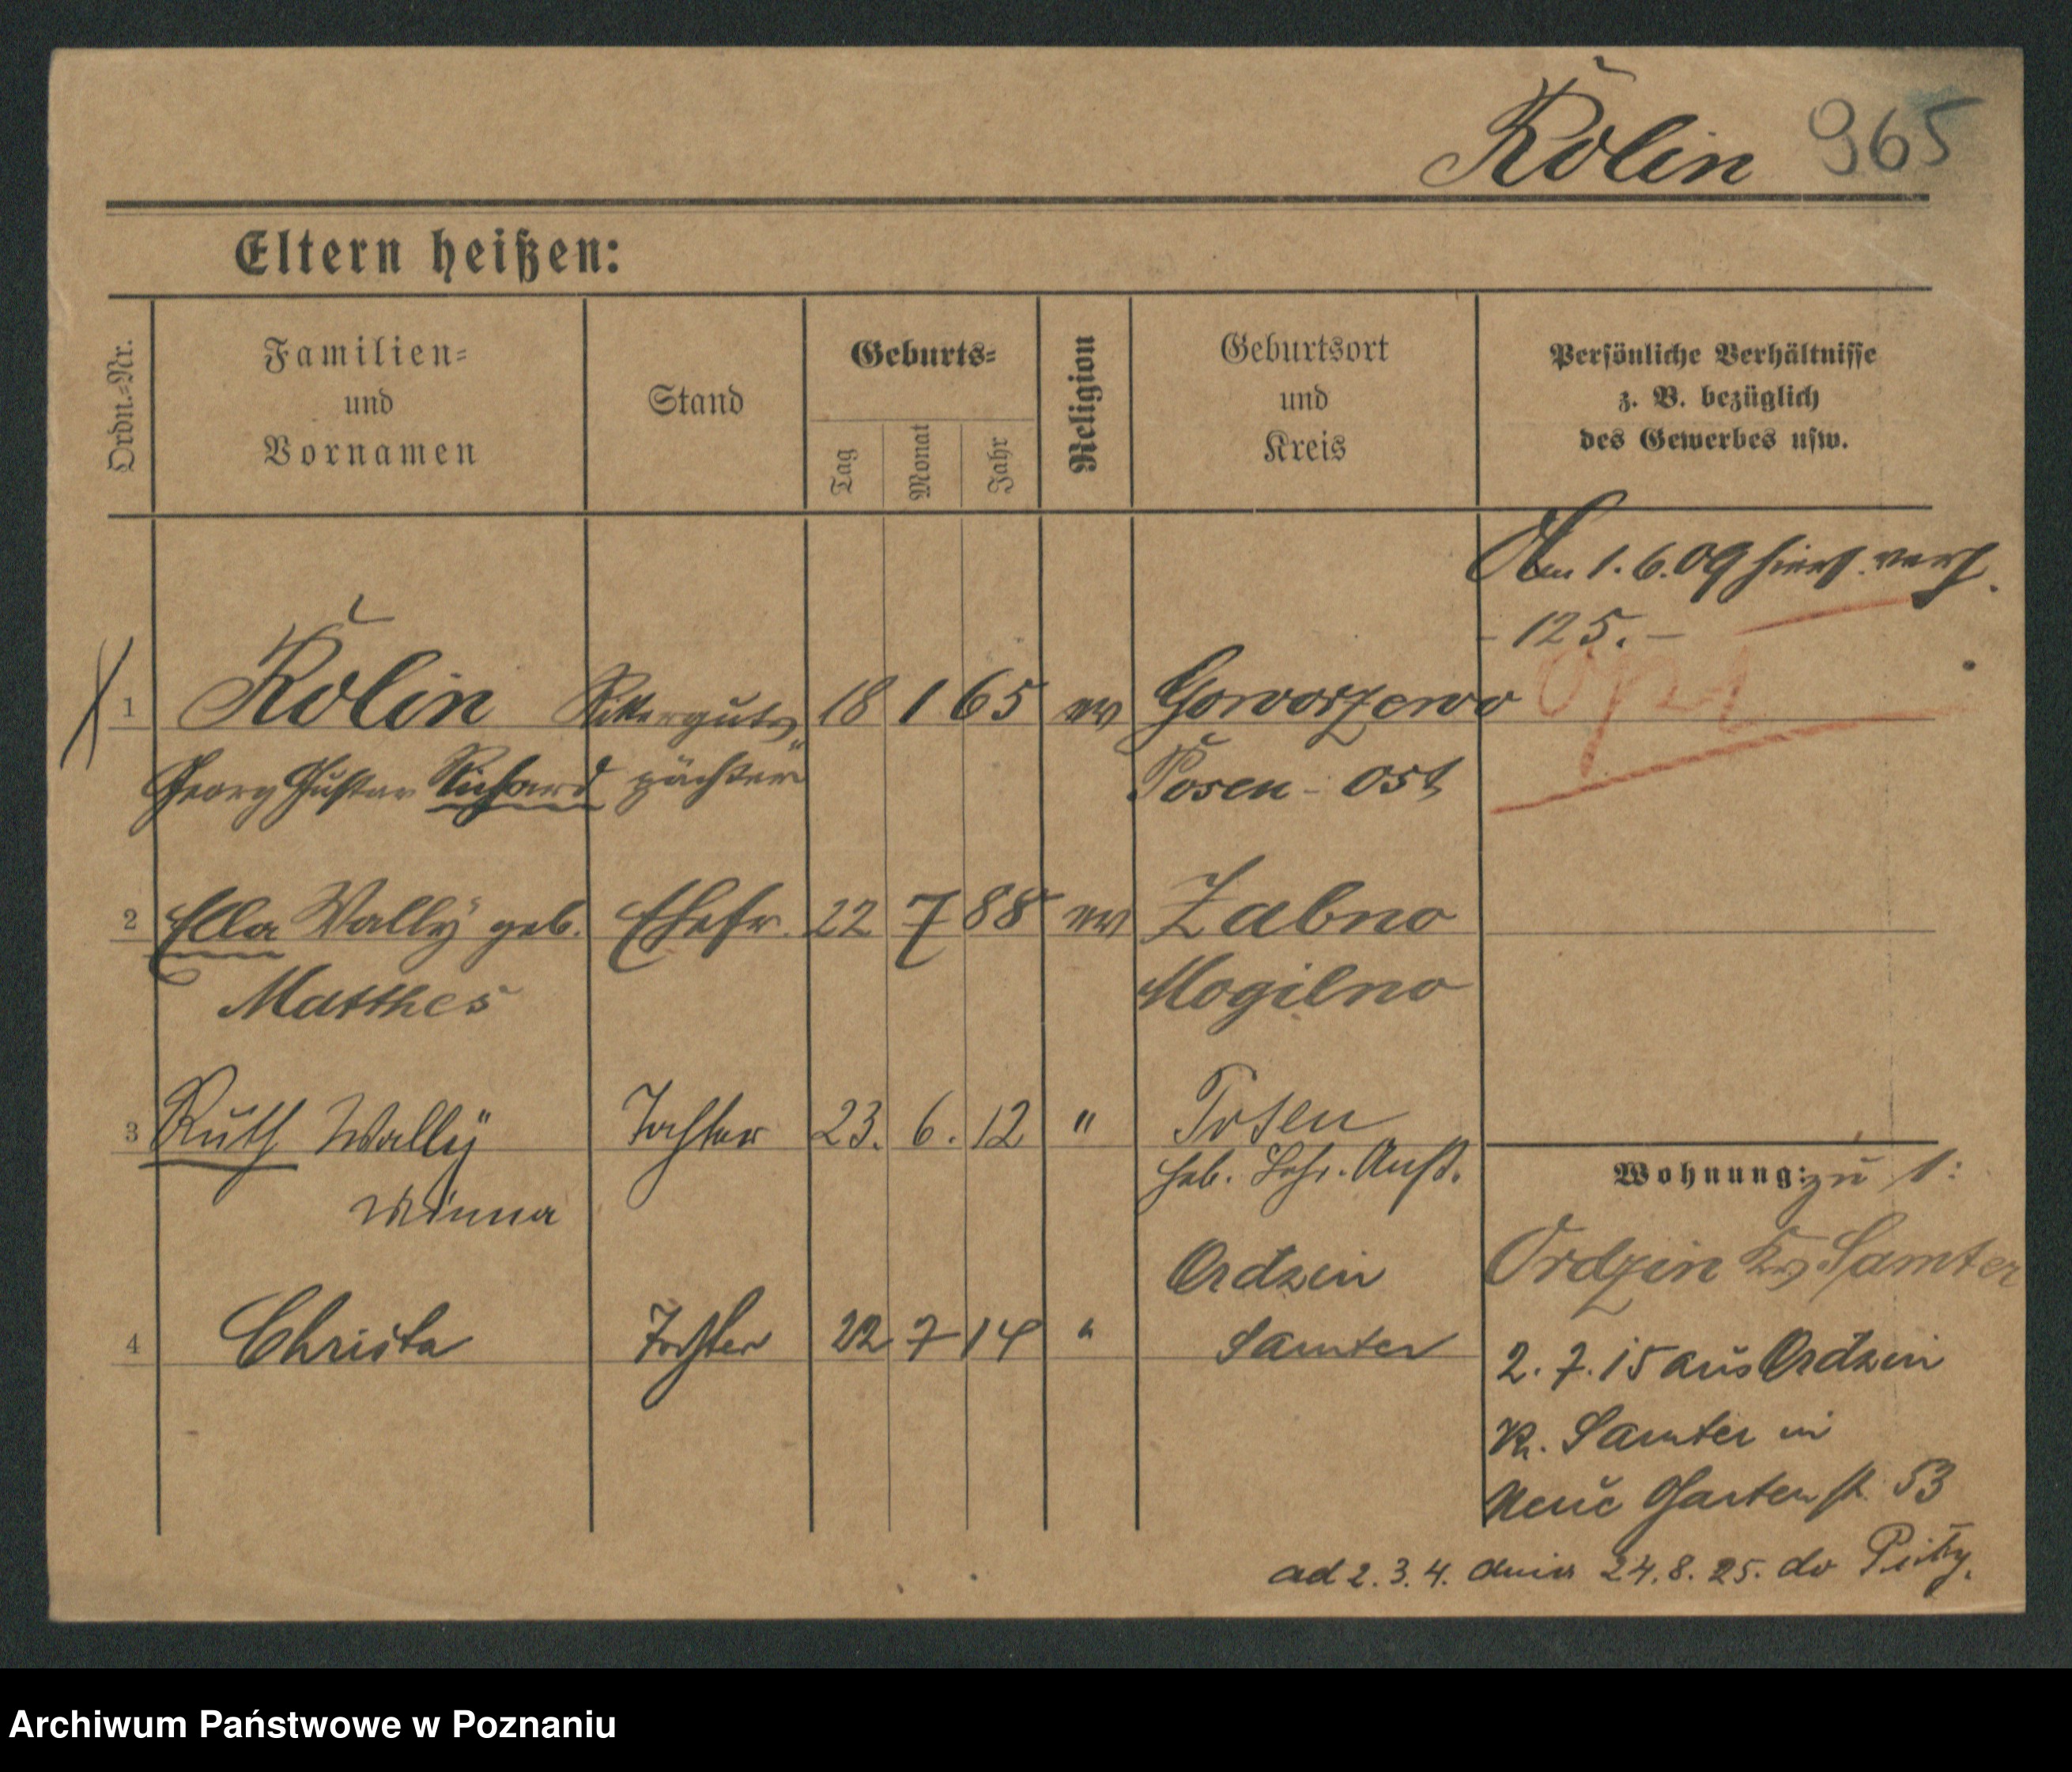 Rolin 965
Eltern heißen:
Ordn.=Nr.
Familien=
und
Vornamen
Stand
Geburts=
Tag
Monat
Jahr
Religion
Geburtsort
und
Kreis
Persönliche Verhältnisse
z. B. bezüglich
des Gewerbes usw.
Am 1.6.09 hierh. verh.
- 125. -
Opt
1 Rolin Ritterguts 18 1 65 ev Goworzewo
Georg Gustav Richard pächter Posen-Ost
2 Ella Wally geb. Ehefr. 22 7 88 ev Zabno
Matthes Mogilno
3 Ruth Wally Tochter 23. 6. 12 " Posen
Minna
Wohnung: zu 1:
Ordzin Krs Samter
Ordzin
4 Christa Tochter 22 7 14 " Samter
2. 7. 15 aus Ordzin
Kr. Samter in
Neue Gartenstr. 53
ad 2. 3. 4. dnia 24. 8. 25. do
Archiwum Państwowe w Poznaniu